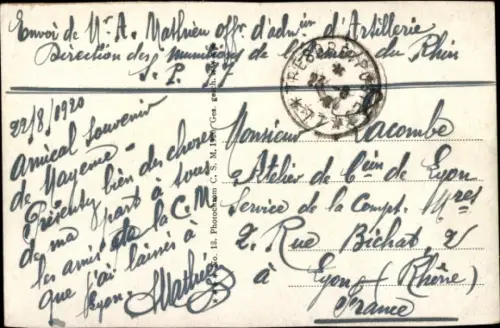 Envoi de Mr A. Mathieu offr. d'admon d'Artillerie
Direction des munitions de l'Armée du Rhin
S. P.
TRESOR ET POSTES
22/8/1920
Amical souvenir
de Mayence
Présentez bien des choses
de ma part à tous
les amis de la C.M
que j'ai laissés à
Lyon.
Mathieu
No. 13. Photochrom C. S. M. Ges. gesch.
Monsieur Lacombe
Atelier de Con de Lyon
Service de la Compt. Mres
2. Rue Bichat, 2
à Lyon (Rhône)
France